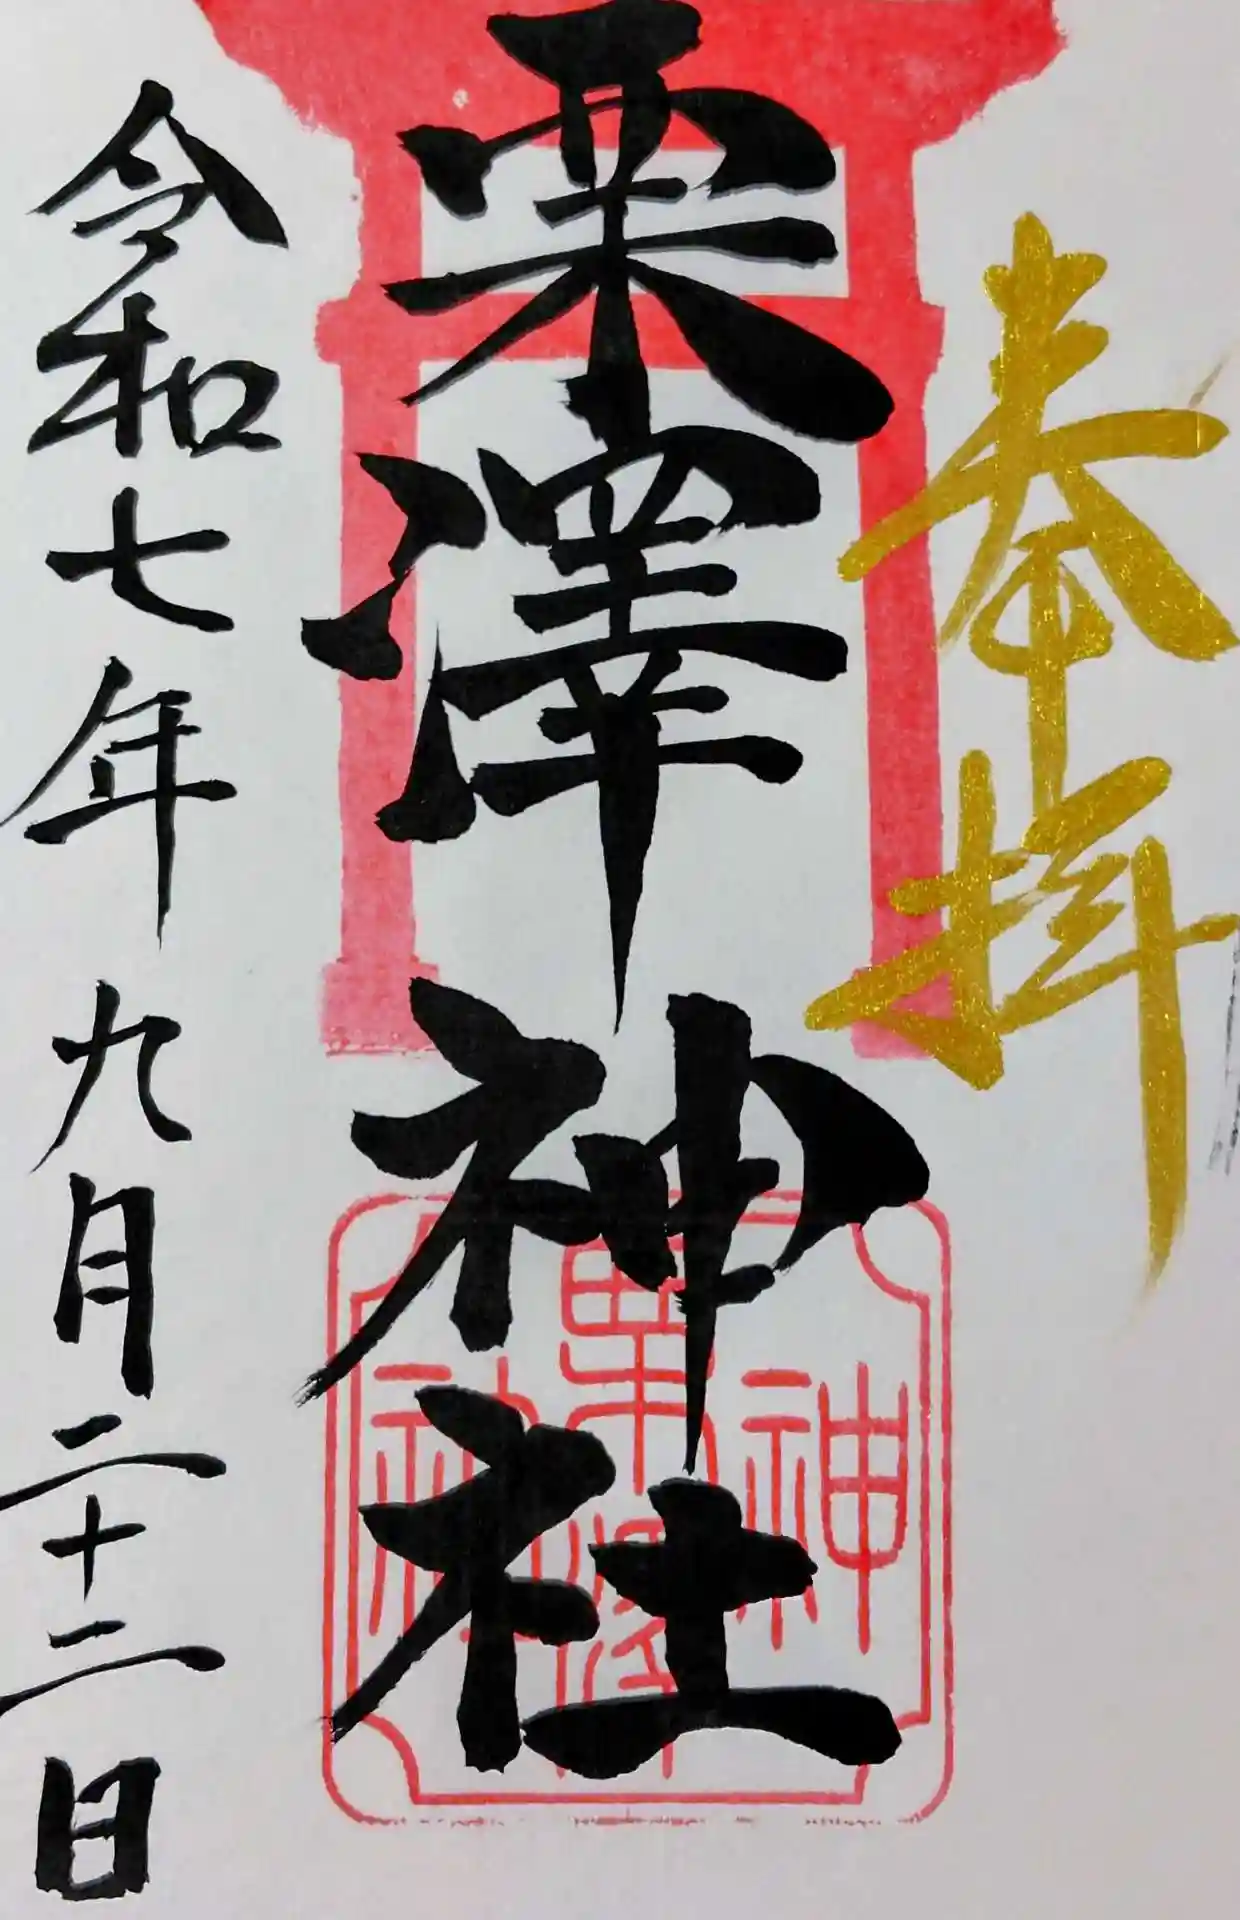 奉拝
栗澤神社
令和七年九月二十二日
栗澤
神
社